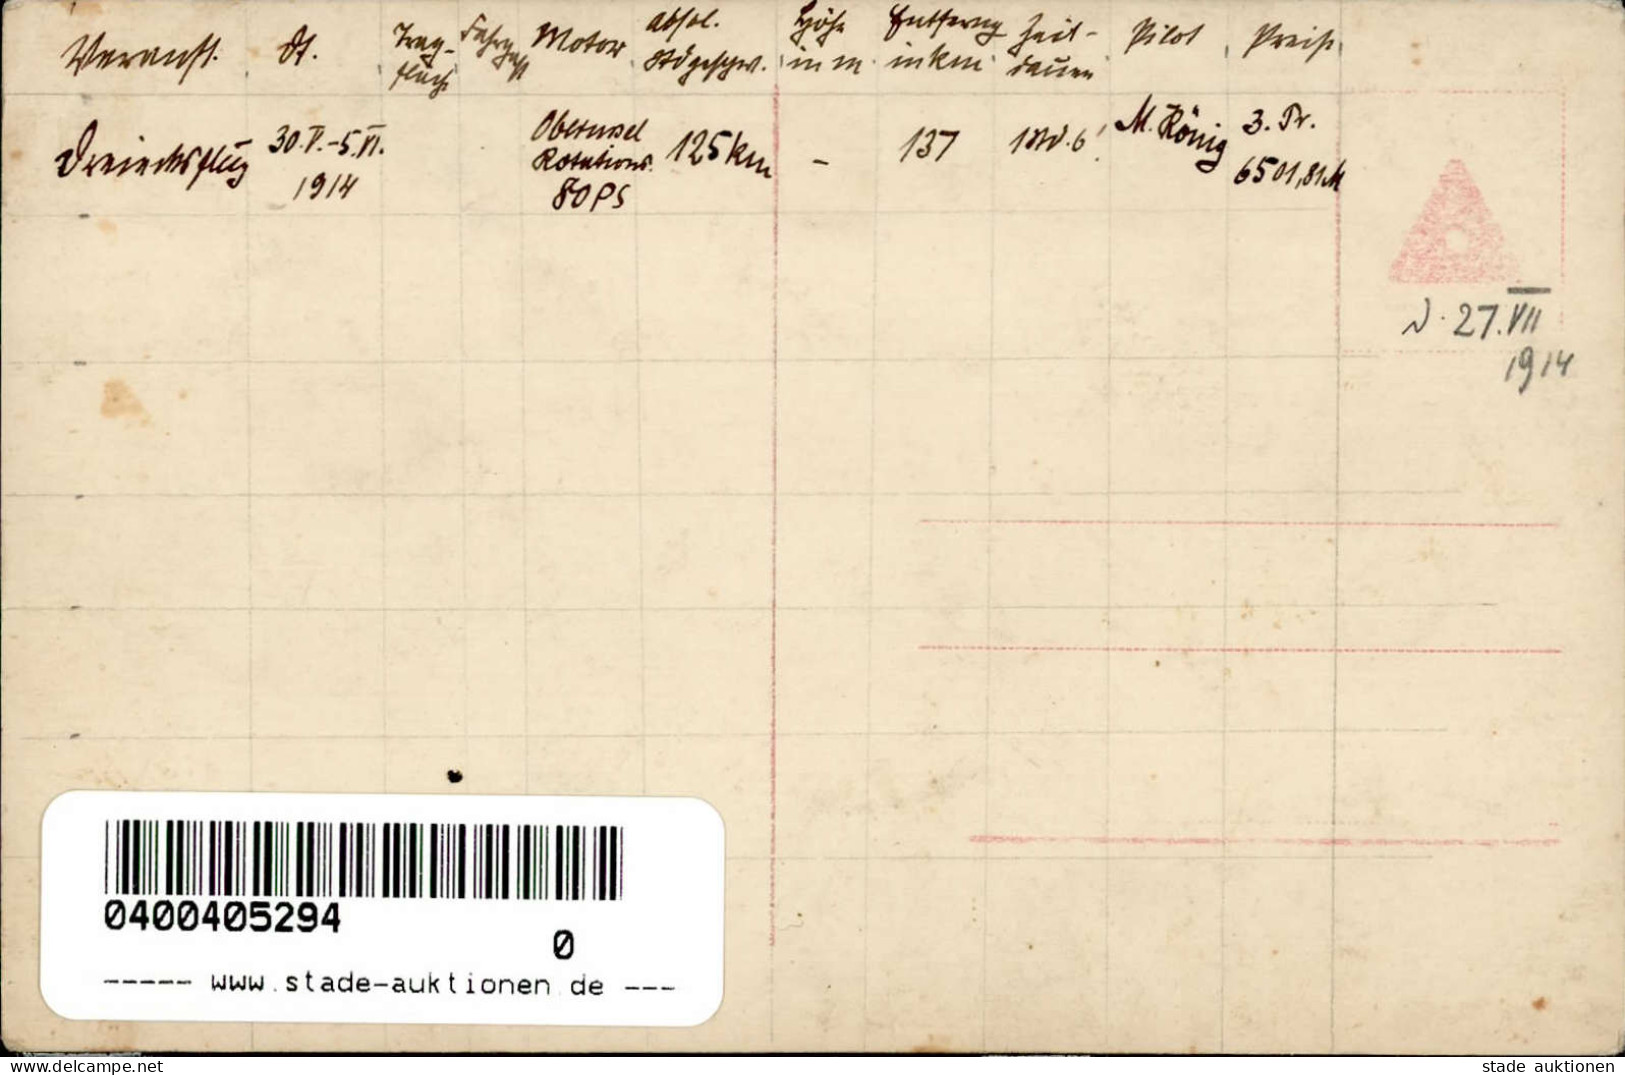 Veranst. Dt. Trag-fläche Fahrgast Motor absol. Stdgeschw. Höhe in m Entferng in km Zeit-dauer Pilot Preise
Dreiecksflug 30.V.-5.VI. 1914 Oberursel Rotations. 80 PS 125 km – 137 1 Std. 6' M. König 3. Pr. 6501,81 M
27.VII
1914
0400405294
0
----- www.stade-auktionen.de ---
www.delcampe.net
stade auktionen